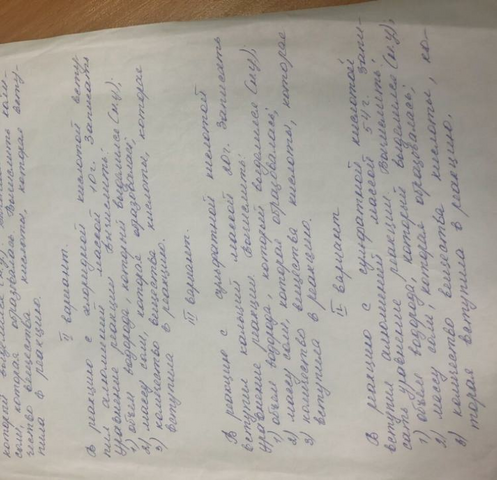 соли, которая образовалась. Вычислить коли-
чество вещества кислоты, которая всту-
пила в реакцию.
II вариант.
В реакцию с хлоридной кислотой всту-
пил алюминий массой 10 г. Записать
уравнение реакции. Вычислить:
1) объем водорода, который выделился (н.у);
2) массу соли, которая образовалась;
3) количество вещества кислоты, которая
вступила в реакцию.
III вариант.
В реакцию с сульфатной кислотой
вступил кальций массой 80 г. Записать
уравнение реакции. Вычислить:
1) объем водорода, который выделился (н.у);
2) массу соли, которая образовалась;
3) количество вещества кислоты, которая
вступила в реакцию.
вариант
В реакцию с сульфатной кислотой
вступил алюминий массой 54 г. Запи-
сать уравнение реакции. Вычислить:
1) объем водорода, который выделился (н.у);
2) массу соли, которая образовалась;
3) количество вещества кислоты, ко-
торая вступила в реакцию.